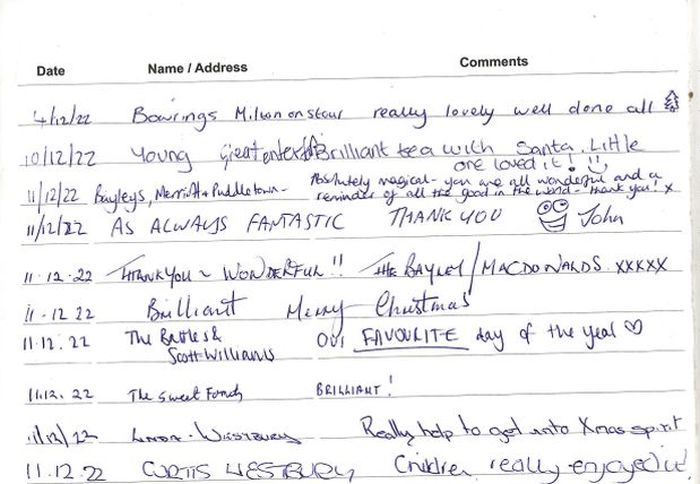 Date Name / Address Comments
4/12/22 Bowrings Milton on stour really lovely well done all
10/12/22 Young Great Brilliant tea with Santa. Little
one loved it!
11/12/22 Bayleys, Merriott & Puddletown - Absolutely magical - you are all wonderful and a
reminder of all the good in the world - thank you! x
11/12/22 AS ALWAYS FANTASTIC THANK YOU John
11.12.22 THANK YOU ~ WONDERFUL!! THE BAYLEY/MACDONALDS. XXXXX
11.12 22 Brilliant Merry Christmas
11.12.22 The Battles & Our FAVOURITE day of the year ♡
Scott-Williams
11.12.22 The Sweet Family BRILLIANT!
11/12/22 LINDA. WESTBURY Really help to get into Xmas spirit
11.12.22 CURTIS WESTBURY Children really enjoyed it